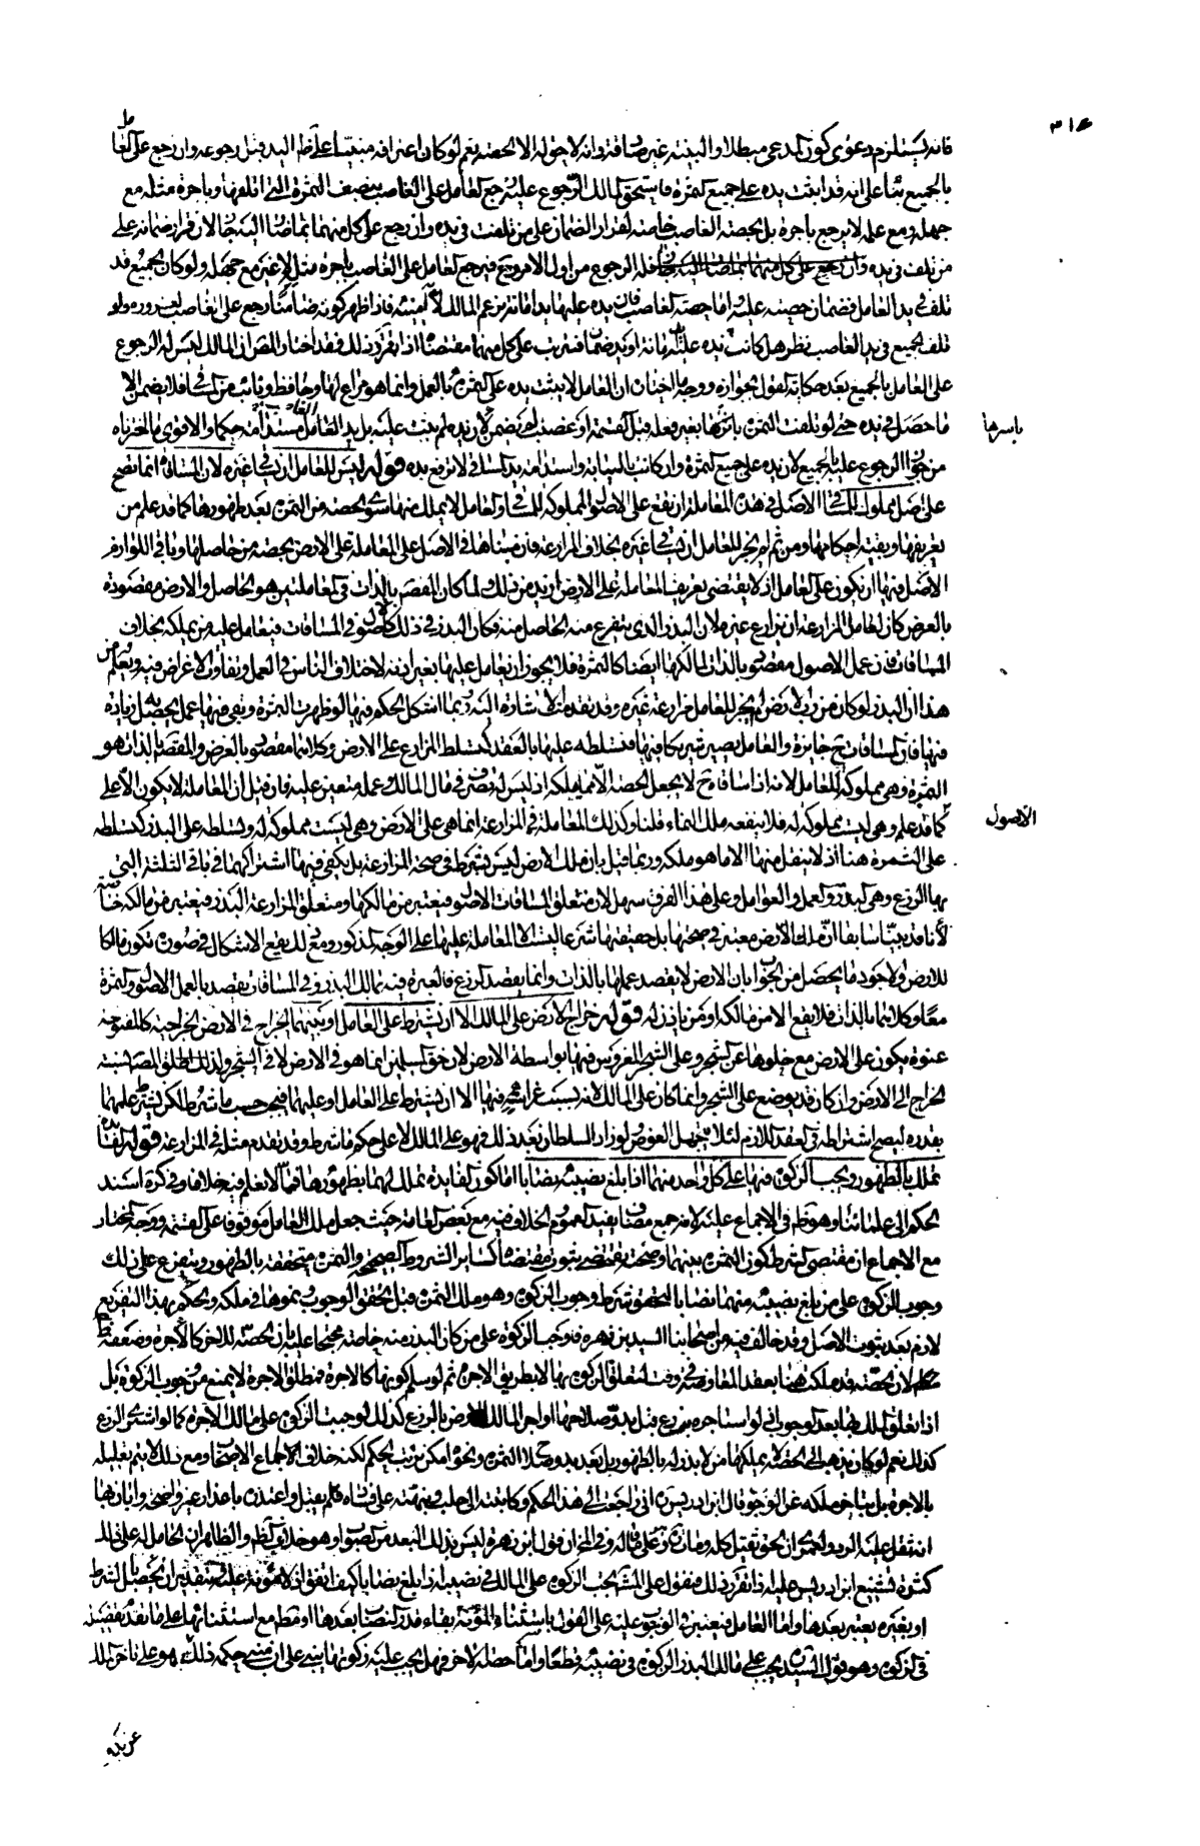 ٣١٤
فانه يستلزم دعوى كون المدعى مبطلا والبينة غير صادقة وانه لا حق له الا الحصة نعم لو كان اعترافه مبنيا على ظاهر اليد قبل رجوعه وان رجع على العامل
بالجميع بناء على انه قد اثبت يده على جميع الثمرة فاستحق المالك الرجوع عليه رجع العامل على الغاصب بنصف الثمرة التي اتلفها وباجرة مثله مع
جهله ومع علمه لا يرجع باجرة بل بحصة الغاصب خاصة لقرار الضمان على من تلفت في يده وان رجع على كل منهما بما صار اليه جاز لان قرار ضمانه على
من تلف في يده فله الرجوع من اول الامر ويرجع العامل على الغاصب باجرة مثله لا غير مع جهله ولو كان الجميع قد
تلف في يد العامل فضمان حصته عليه واما حصة الغاصب فان يده عليها يد امانة بزعم المالك لانه امينه فاذا ظهر كونه ضامنا رجع على الغاصب لغروره ولو
تلف الجميع في يد الغاصب نظر هل كانت يده عليه امانة او يد ضمان فترتب على كل منهما مقتضاه اذا تقرر ذلك فقد اختار المصنف ان المالك ليس له الرجوع
على العامل بالجميع بعد حكاية القول بجوازه ووجه ما اختاره ان العامل لا يثبت يده على الثمرة بالعمل وانما هو مراع لها وحافظ ونائب عن الساقي فلا يضمن الا
ما حصل في يده حتى لو تلفت الثمرة باسرها بغير فعله قبل القسمة او غصبت لم يضمن لان يده لم تثبت عليه بل يد العامل مستدامة حكما والاقوى ما اختاره
باسرها
من جواز الرجوع عليه بالجميع لان يده على جميع الثمرة وان كانت بالنيابة واستدامة يد المساقي لا ترفع يده قوله ليس للعامل ان يساقي غيره لان المساقاة انما تصح
على اصل مملوك للمساقي الاصل في هذه المعاملة ان تقع على الاصول المملوكة للمساقي والعامل لا يملك منها سوى حصته من الثمرة بعد ظهورها كما قد علم من
تعريفها وبقية احكامها ومن ثم لم يجز للعامل ان يساقي غيره بخلاف المزارعة فان مبناها في الاصل على المعاملة على الارض بحصة من حاصلها وباقي اللوازم
الاصل فيها ان تكون على العامل اذ لا يقتضى تعريف المعاملة على الارض ازيد من ذلك ولما كان المقصود بالذات في المعاملتين هو الحاصل والارض مقصودة
بالعرض كان لعامل المزارعة ان يزارع غيره لان البذر الذي يتفرع منه الحاصل منه فكان البذر في ذلك كالاصول في المساقات فيعامل عليه من يملكه بخلاف
المساقات فان عمل الاصول مقصود بالذات لمالكها ايضا كالثمرة فلا يجوز ان يعامل عليها بغير اذنه لاختلاف الناس في العمل وتفاوت الاغراض فيه ويعلم من
هذا ان البذر لو كان من رب الارض لم يجز للعامل مزارعة غيره وقد تقدمت الاشارة اليه وربما اشكل الحكم فيها لو ظهرت الثمرة وبقي فيها عمل يحصل به زيادة
فيها فان المساقات ح جايزة والعامل يصير شريكا فيها فتسلطه عليها بالعقد كتسلط المزارع على الارض وكلاهما مقصود بالعرض والمقصود بالذات هو
الثمرة وهي مملوكة للعامل لانه اذا ساقاه ح لا يجعل الحصة الا مما يملكه اذ ليس له تصرف في مال المالك وعمله متعين عليه فان قيل ان المعاملة لا يكون الا على
الاصول
كما قد علم وهي ليست مملوكة له فلا ينفعه ملك النماء قلنا وكذلك المعاملة في المزارعة انما هي على الارض وهي ليست مملوكة له وتسلطه على البذر كتسلطه
على الثمرة هنا اذ لا ينقل منها الا ما هو ملكه وربما قيل بان ملك الارض ليس بشرط في صحة المزارعة بل يكفي فيها اشتراكهما في باقي الثلثة التي
بها الزرع وهي البذر والعمل والعوامل وعلى هذا الفرق سهل لان متعلق المساقات الاصول فيعتبر من مالكها ومتعلق المزارعة البذر فيعتبر من مالكه خاصة
لانا قد بينا سابقا ان ملك الارض معتبر في صحتها بل حقيقتها شرعا ليست الا المعاملة عليها على الوجه المذكور ومع ذلك يقع الاشكال في صورة تكون مالكا
للارض ولا جود ما يحصل من الجواب ان الارض لا يقصد عملها بالذات وانما يقصد الزرع فالعبرة فيه بمالك البذر وفي المساقات يقصد بالعمل الاصول والثمرة
معا وكلاهما بالذات فلا يقع الا من مالكه او من ياذن له قوله خراج الارض على المالك الا ان يشترط على العامل او بينهما الخراج في الارض الخراجية كالمفتوحة
عنوة يكون على الارض مع خلوها عن الشجر وعلى الشجر المغروس فيها بواسطة الارض لان حق المسلمين انما هو في الارض لا في الشجر ولذلك اطلق المصنف نسبته
الخراج الى الارض وان كان قد يوضع على الشجر وانما كان على المالك لانه بسبب غراسه فيها الا ان يشترط على العامل او عليهما فيجب حسب ما شرط لكن يشترط علمهما
بقدره ليصح اشتراطه في العقد اللازم لئلا يتجهل العوض ولو زاد السلطان بعد ذلك فهو على المالك لا على حكم ما شرط وقد تقدم مثله في المزارعة قوله الفائدة
تملك بالظهور وتجب الزكوة فيها على كل واحد منهما اذا بلغ نصيبه نصابا اما كون الفايدة تملك لهما بظهورها فمما لا نعلم فيه خلافا وفي كره اسند
الحكم الى علمائنا وهو ظاهر في الاجماع عليه لانه جمع مضاف يفيد العموم والخلاف فيه مع بعض العامة حيث جعل ملك العامل موقوفا على القسمة ووجه المختار
مع الاجماع ان مقتضى الشرط كون الثمرة بينهما وصحته يقتضى ثبوت مقتضاه كساير الشروط الصحيحة والثمرة متحققة بالظهور ويتفرع على ذلك
وجوب الزكوة على من بلغ نصيبه منهما نصابا لتحقق شرط وجوب الزكوة وهو ملك الثمرة قبل تحقق الوجوب ونموها في ملكه والحكم بهذا التفريع
لازم بعد ثبوت الاصل وقد خالف فيه من اصحابنا السيد بن زهره فاوجب الزكوة على من كان البذر منه خاصة محتجا عليه بان الحصة للاخر كالاجرة وضعفه ظاهر
لان الحصة قد ملكت هنا بعقد المعاوضة في وقت لتعلق الزكوة بها لا بطريق الاجرة ثم لو سلم كونها كالاجرة فمطلق الاجرة لا يمنع من وجوب الزكوة بل
اذا تعلق الملك بها بعد الوجوب اذ لو استاجره بزرع قبل بدو صلاحها او اجر المالك الارض بالزرع كذلك لوجبت الزكوة على مالك الاجرة كما لو اشترى الزرع
كذلك نعم لو كان يذهب الى ان الحصة لا يملكها من لا بذر له بالظهور بل بعد بدو صلاح الثمرة ونحوه امكن ترتب الحكم لكنه خلاف الاجماع الاصحاب ومع ذلك لا يتم تعليله
بالاجرة بل بتاخر ملكه عن الوجوب قال ابن ادريس ره اني راجعت في هذا الحكم وكاتبته الى حلب ونبهته على فساده فلم يقبل واعتذره باعذار غير واضحة وابان بها
انه ثقل عليه الرد ولعمري ان الحق ثقيل كله ومات ره على ما قاله وفي المخ ان قول ابن زهره ليس بذلك البعيد من الصواب وهو خلاف الظاهر والظاهر ان الحامل له على ذلك
كثرة تشنيع ابن ادريس عليه اذا تقرر ذلك فنقول على المشهور تجب الزكوة على المالك في نصيبه اذا بلغ نصابا كيف اتفق اذ لا مؤنة عليه في تقدير ان يحصل بالشرط
او بغيره يعتبر بعدها واما العامل فيعتبر في الوجوب عليه على القول باستثناء المؤنة بقاء قدر النصاب بعدها او مط مع استثنائها على ما تقدم تفصيله
في الزكوة وهو قول السيد ره يجب على مالك البذر الزكوة في نصيبه قطعا واما حصة الاخر فهل يجب عليه زكوتها يبنى على ان منشئ حكمه ذلك هو على تاخر ملك